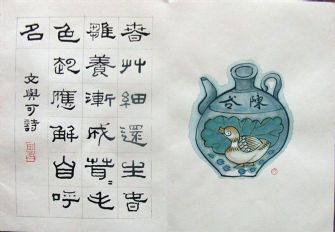 春艸細還生春
雛養漸成茸〻毛
色起應解自呼
名
文與可詩
陳谷